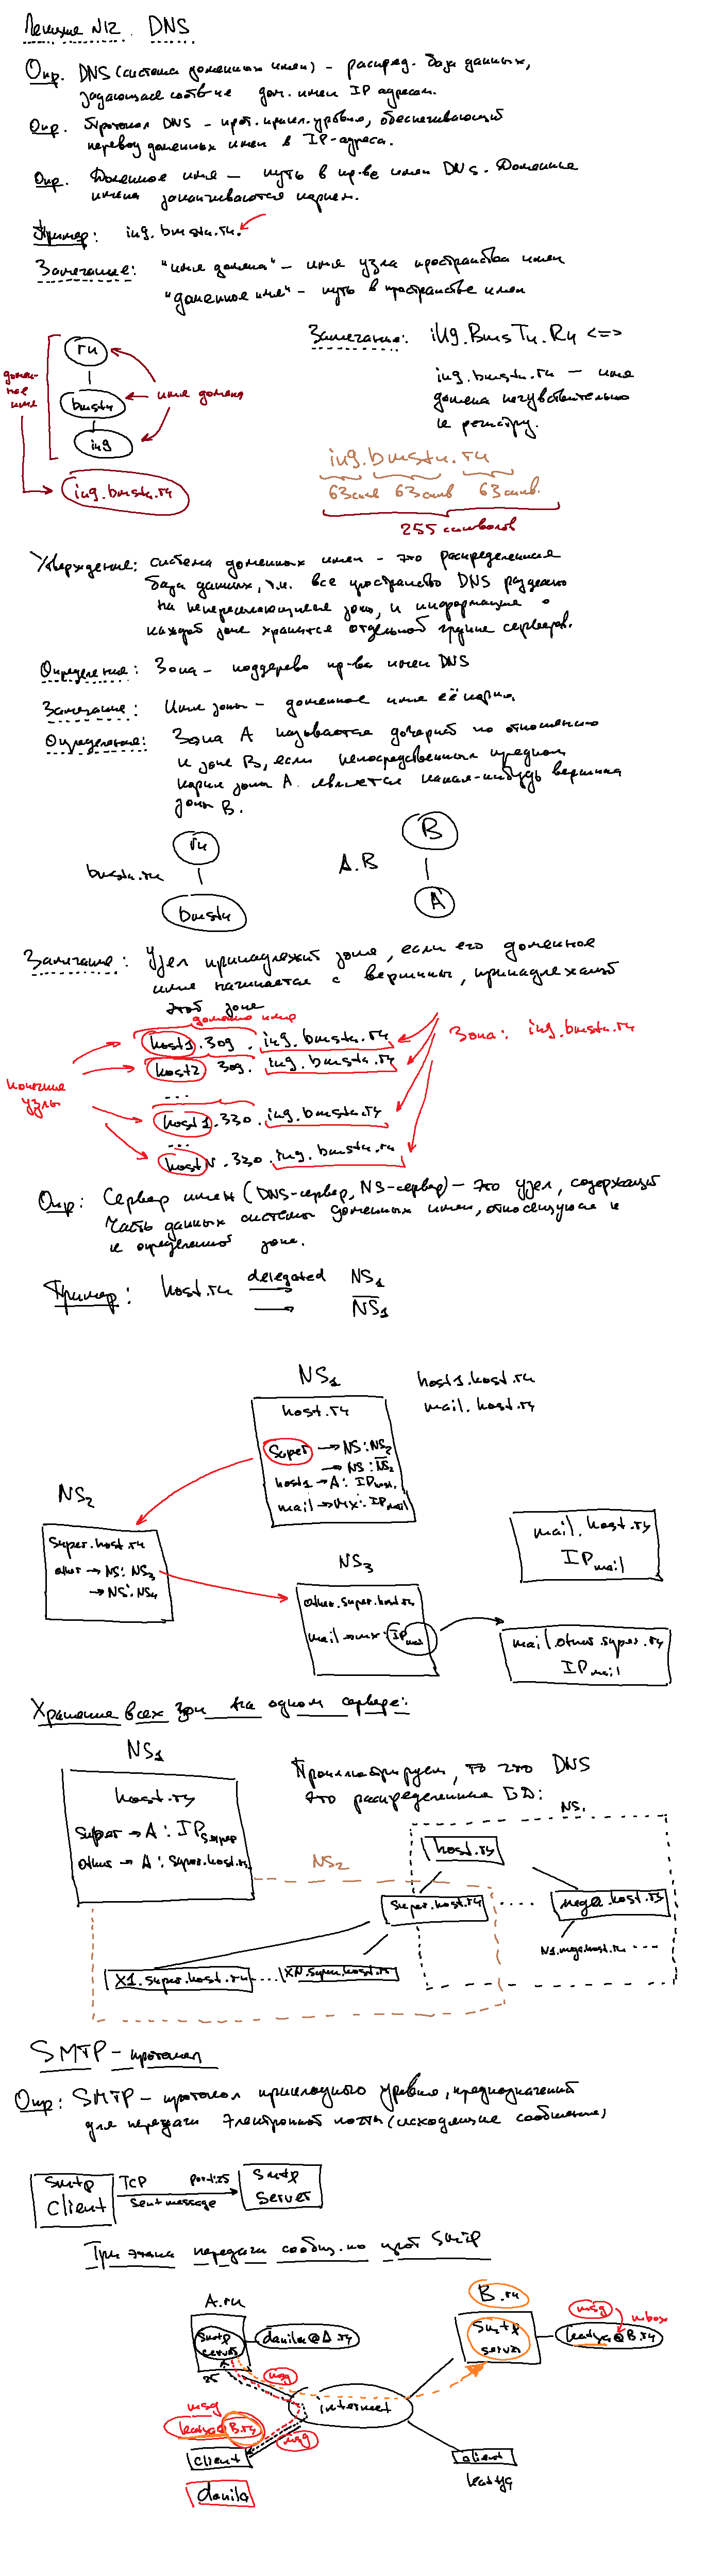 Лекция №12. DNS
Опр. DNS (система доменных имен) - распред. база данных,
задающая соотв-ие дом. имен IP адресам.
Опр. Протокол DNS - прот. прикл. уровня, обеспечивающий
перевод доменных имен в IP-адреса.
Опр. Доменное имя - путь в пр-ве имен DNS. Доменные
имена заканчиваются корнем.
Пример: ing.bmstu.ru.
Замечание: "имя домена" - имя узла пространства имен
"доменное имя" - путь в пространстве имен
ru
bmstu
ing
имя домена
домен-
ное
имя
ing.bmstu.ru
Замечание: iNg.BmsTu.Ru <=>
ing.bmstu.ru - имя
домена нечувствительно
к регистру.
ing.bmstu.ru
63симв 63симв 63симв.
255 символов
Утверждение: система доменных имен - это распределенная
база данных, т.к. все пространство DNS разделено
на непересекающиеся зоны, и информация о
каждой зоне хранится отдельной группе серверов.
Определение: Зона - поддерево пр-ва имен DNS
Замечание: Имя зоны - доменное имя её корня.
Определение: Зона A называется дочерней по отношению
к зоне B, если непосредственным предком
корня зоны A является какая-нибудь вершина
зоны B.
bmstu.ru
ru
bmstu
A.B
B
A
Замечание: Узел принадлежит зоне, если его доменное
имя начинается с вершины, принадлежащей
этой зоне
доменно имя
host1.309.ing.bmstu.ru
host2 309.ing.bmstu.ru
...
host1.330.ing.bmstu.ru
...
hostN.330.ing.bmstu.ru
конечные
узлы
Зона: ing.bmstu.ru
Опр: Сервер имен (DNS-сервер, NS-сервер) - это узел, содержащий
часть данных системы доменных имен, относящуюся к
к определенной зоне.
Пример: host.ru delegated NS1
NS1
NS1
host.ru
Super → NS:NS2
→ NS:NS2
host1 → A: IPhost1
mail → MX: IPmail
host1.host.ru
mail.host.ru
NS2
super.host.ru
other → NS: NS3
→ NS:NS4
NS3
other.super.host.ru
mail → mx:
mail.host.ru
IPmail
mail.other.super.ru
IPmail
Хранение всех зон на одном сервере:
NS1
host.ru
super → A: IPsuper
other → A: super.host.ru
Проиллюстрируем, то что DNS
это распределенная БД:
NS1
host.ru
NS2
super.host.ru
....
mega.host.ru
X1.super.host.ru
....
XN.super.host.ru
N1.mega.host.ru
SMTP - протокол
Опр: SMTP - протокол прикладного уровня, предназначенный
для передачи электронной почты (исходящие сообщения)
smtp
client
TCP port:25
Sent message
smtp
server
Три этапа передачи сообщ. по прот SMTP
A.ru
smtp
server
25
danila@A.ru
B.ru
smtp
server
msg
mbox
katya@B.ru
msg
internet
msg
katya@B.ru
msg
client
danila
client
katya